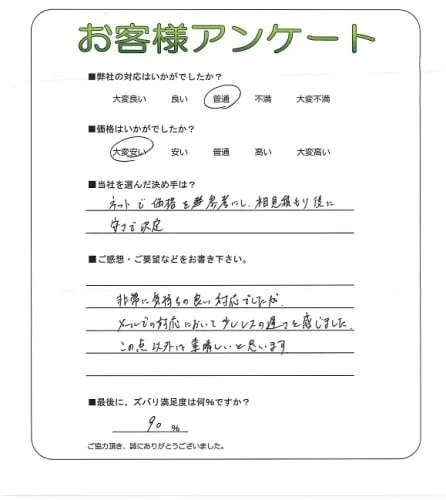 お客様アンケート
■弊社の対応はいかがでしたか？
大変良い 良い 普通 不満 大変不満
■価格はいかがでしたか？
大変安い 安い 普通 高い 大変高い
■当社を選んだ決め手は？
ネットで価格を参考にし、相見積もり後に
安さで決定
■ご感想・ご要望などをお書き下さい。
非常に気持ちの良い対応でしたが、
メールでの対応において少しレスの遅さを感じました。
この点以外は素晴しいと思います
■最後に、ズバリ満足度は何%ですか？
90 %
ご協力頂き、誠にありがとうございました。